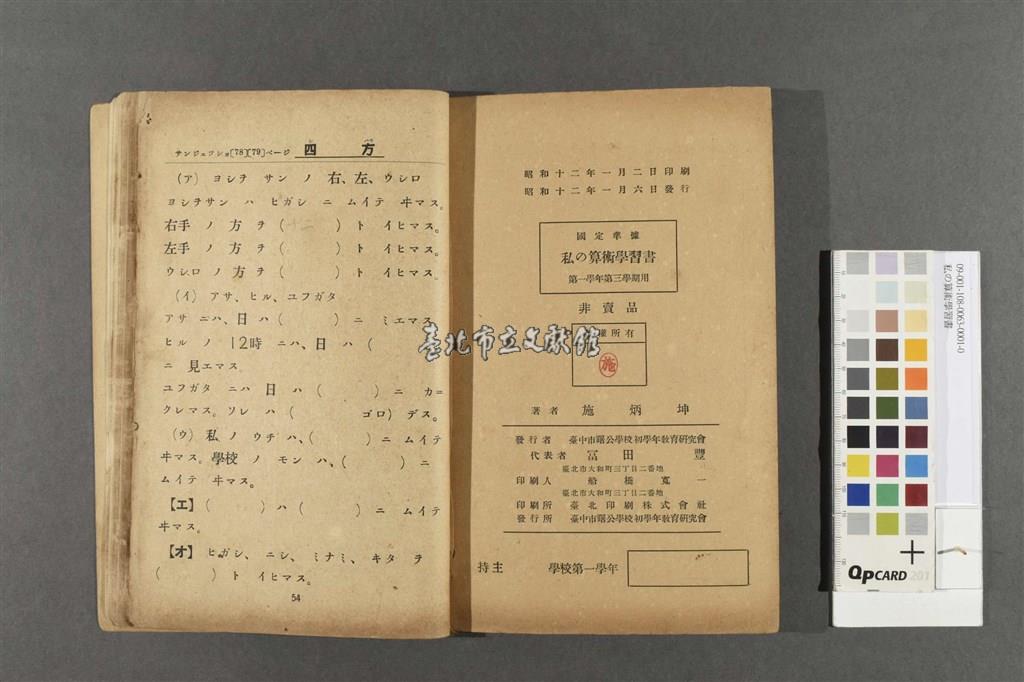 サンジュツショ[78][79]ページ 四方
(ア) ヨシヲ サン ノ 右、左、ウシロ
ヨシヲサン ハ ヒガシ ニ ムイテ ヰマス。
右手 ノ 方ヲ ( ) ト イヒマス。
左手 ノ 方ヲ ( ) ト イヒマス。
ウシロ ノ 方ヲ ( ) ト イヒマス
(イ) アサ、ヒル、ユフガタ
アサ ニハ、日 ハ ( ) ニ ミエマス
ヒル ノ 12時 ニハ、日 ハ (
ニ 見エマス
ユフガタ ニハ 日 ハ ( ) ニ カ=
クレマス。ソレ ハ ( ゴロ) デス。
(ウ) 私 ノ ウチ ハ、( ) ニ ムイテ
ヰマス。學校 ノ モン ハ、( ) ニ
ムイテ ヰマス。
【エ】( ) ハ ( ) ニ ムイテ
ヰマス。
【オ】 ヒガシ、ニシ、ミナミ、キタ ヲ
( ) ト イヒマス。
54
昭和十二年一月二日印刷
昭和十二年一月六日發行
國定準據
私の算術學習書
第一學年第三學期用
非賣品
權所有
施
著者 施炳坤
發行者 臺中市曙公學校初學年敎育硏究會
代表者 冨田豐
臺北市大和町三丁目二番地
印刷人 船橋寬一
臺北市大和町三丁目二番地
印刷所 臺北印刷株式會社
發行所 臺中市曙公學校初學年敎育硏究會
持主 學校第一學年
臺北市立文獻館
09-001-108-0063-0001-0
私の算術學習書
QPCARD 201